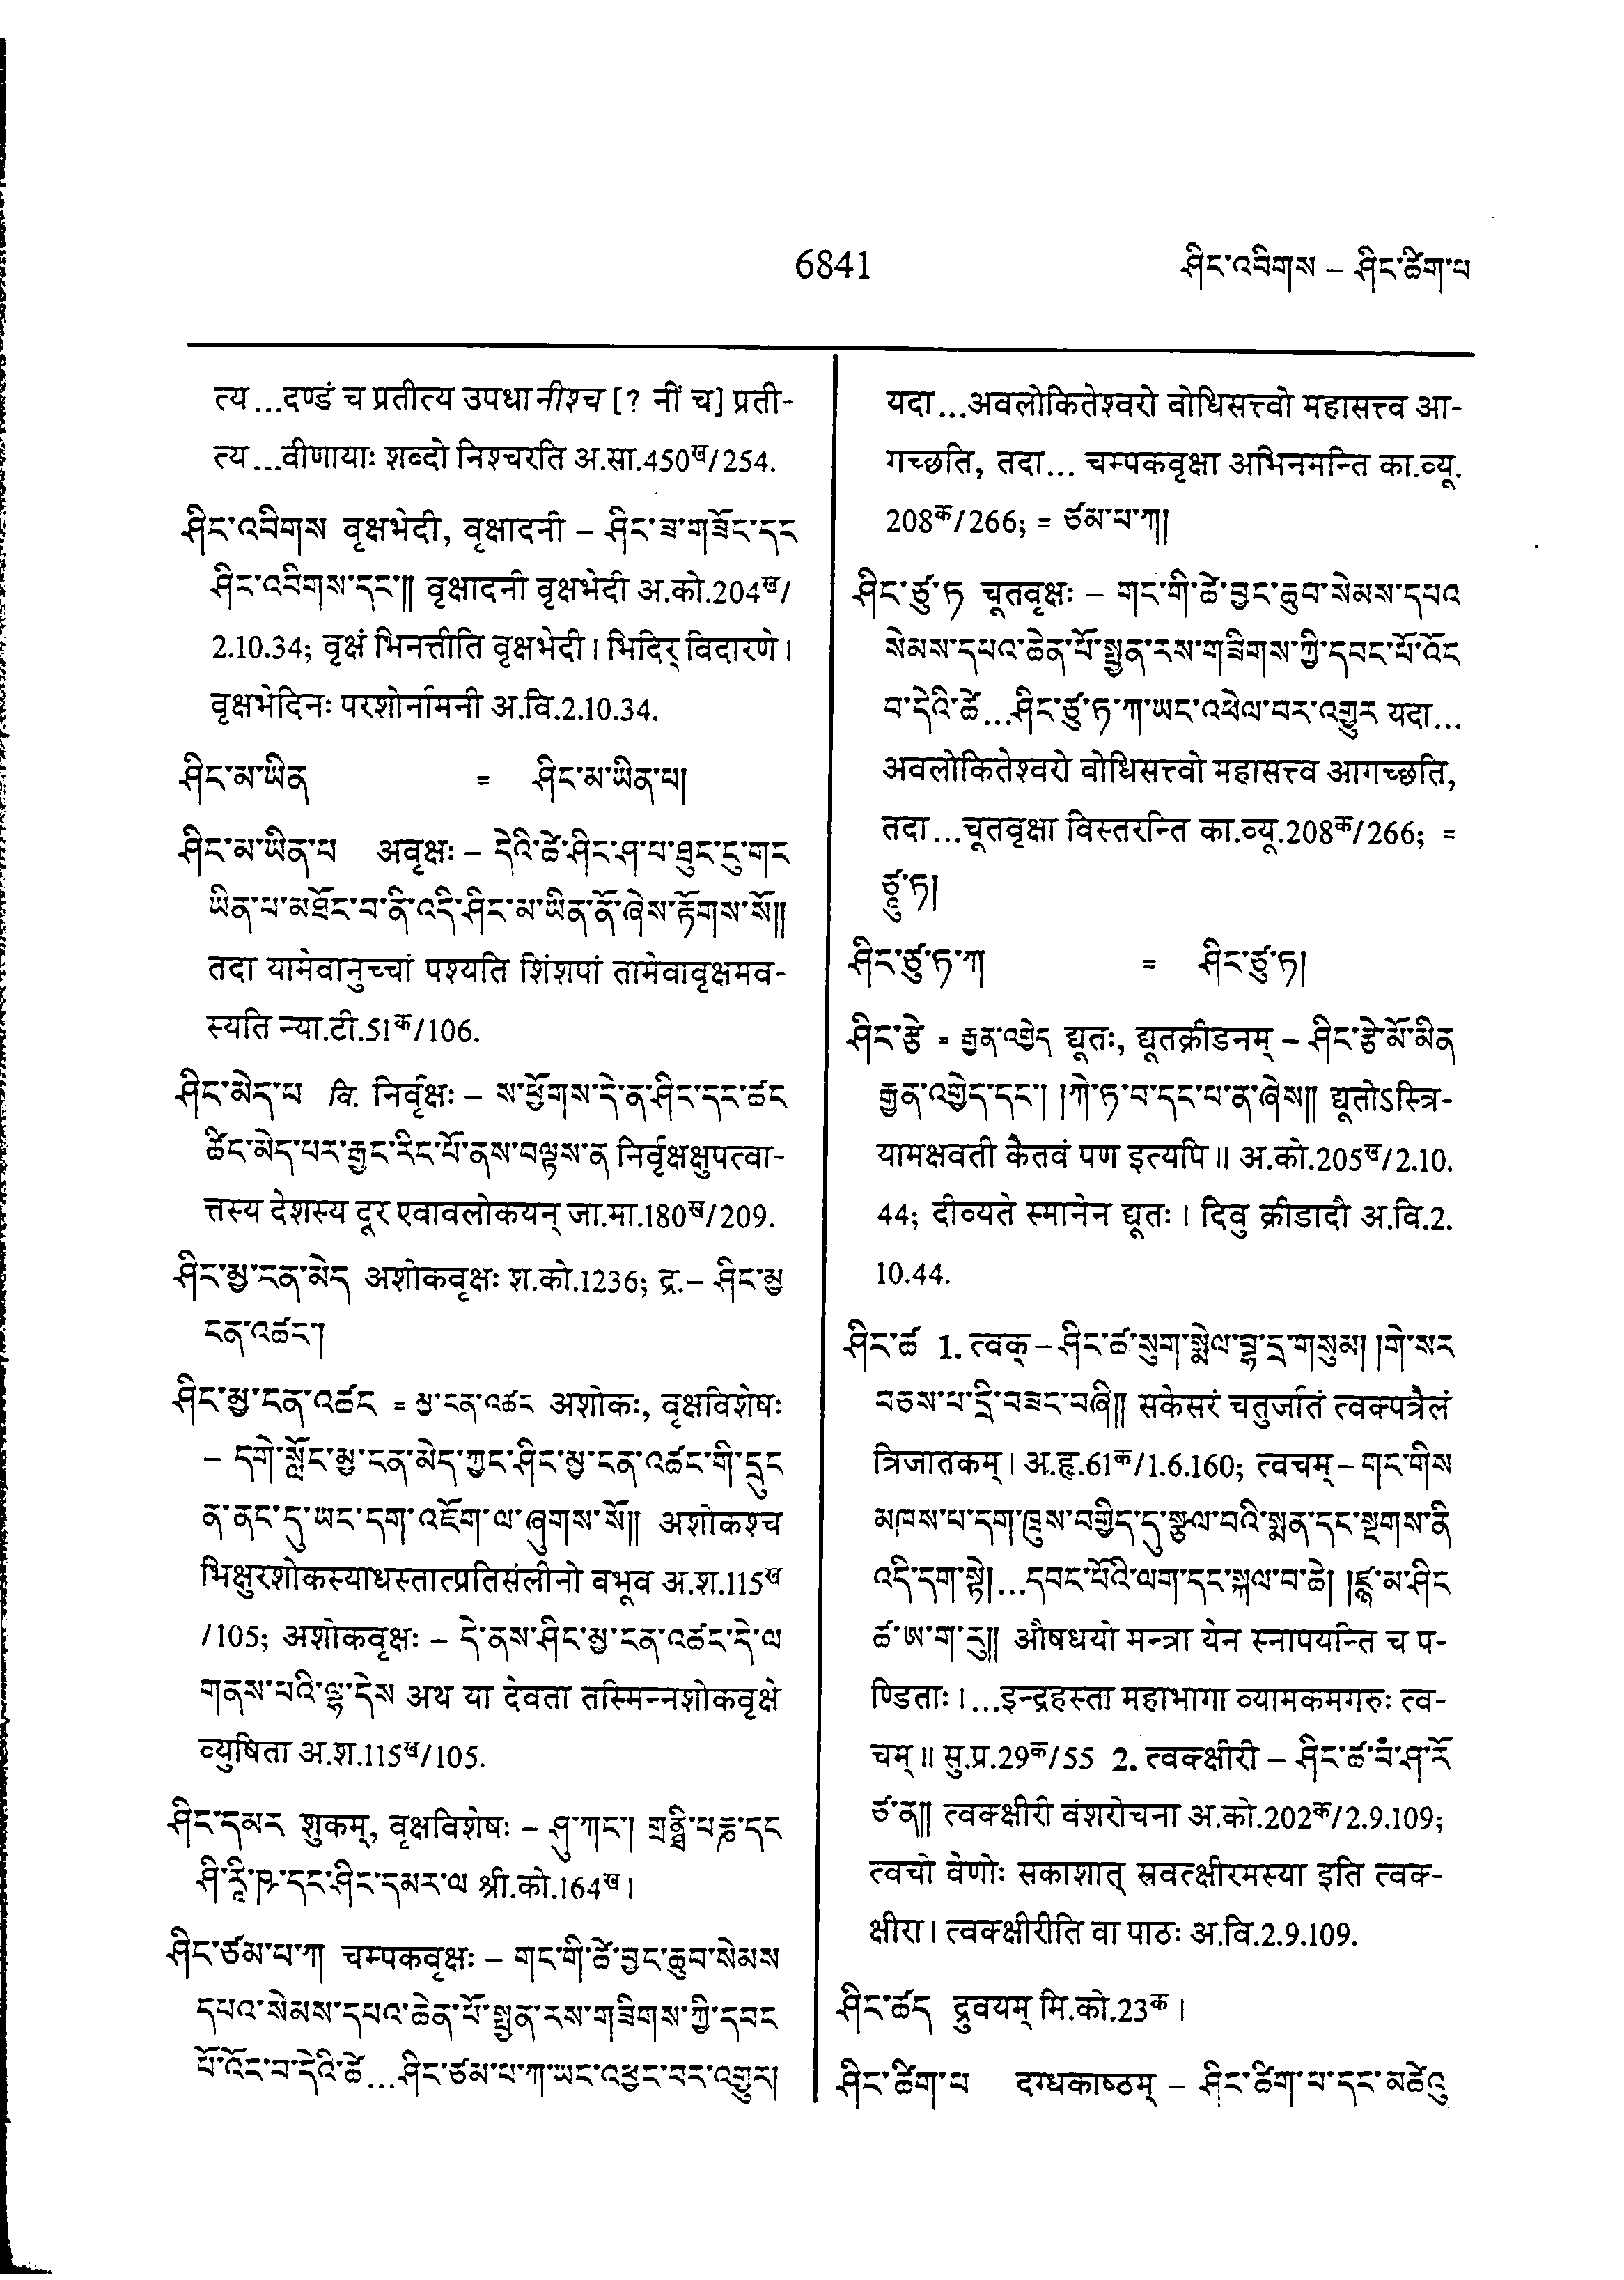 6841
ཤིང་འབིགས – ཤིང་ཚིག་པ
त्य...दण्डं च प्रतीत्य उपधानीश्च [? नीं च] प्रती-
त्य...वीणायाः शब्दो निश्चरति अ.सा.450ख/254.
ཤིང་འབིགས वृक्षभेदी, वृक्षादनी – ཤིང་ཟ་གཟོང་དང
ཤིང་འབིགས་དང་།། वृक्षादनी वृक्षभेदी अ.को.204ख/
2.10.34; वृक्षं भिनत्तीति वृक्षभेदी। भिदिर् विदारणे।
वृक्षभेदिनः परशोर्नामनी अ.वि.2.10.34.
ཤིང་མ་ཡིན = ཤིང་མ་ཡིན་པ།
ཤིང་མ་ཡིན་པ अवृक्षः – དེའི་ཚེ་ཤིང་ཤ་པ་ཐུང་ངུ་གང
ཡིན་པ་མཐོང་བ་ནི་འདི་ཤིང་མ་ཡིན་ནོ་ཞེས་རྟོགས་སོ།།
तदा यामेवानुच्चां पश्यति शिंशपां तामेवावृक्षमव-
स्यति न्या.टी.51क/106.
ཤིང་མེད་པ वि. निर्वृक्षः – ས་ཕྱོགས་དེ་ན་ཤིང་དང་ཚང
ཚིང་མེད་པར་རྒྱང་རིང་པོ་ནས་བལྟས་ན निर्वृक्षक्षुपत्वा-
त्तस्य देशस्य दूर एवावलोकयन् जा.मा.180ख/209.
ཤིང་མྱ་ངན་མེད अशोकवृक्षः श.को.1236; द्र.– ཤིང་མྱ
ངན་འཚང་།
ཤིང་མྱ་ངན་འཚང = མྱ་ངན་འཚང अशोकः, वृक्षविशेषः
– དགེ་སློང་མྱ་ངན་མེད་ཀྱང་ཤིང་མྱ་ངན་འཚང་གི་དྲུང
ན་ནང་དུ་ཡང་དག་འཇོག་ལ་ཞུགས་སོ།། अशोकश्च
भिक्षुरशोकस्याधस्तात्प्रतिसंलीनो बभूव अ.श.115ख
/105; अशोकवृक्षः – དེ་ནས་ཤིང་མྱ་ངན་འཚང་དེ་ལ
གནས་པའི་ལྷ་དེས अथ या देवता तस्मिन्नशोकवृक्षे
व्युषिता अ.श.115ख/105.
ཤིང་དམར शुकम्, वृक्षविशेषः – ཤུ་ཀང་། གྲནྠི་པརྞ་དང
ཤི་རཱི་ཥ་དང་ཤིང་དམར་ལ श्री.को.164ख।
ཤིང་ཙམ་པ་ཀ चम्पकवृक्षः – གང་གི་ཚེ་བྱང་ཆུབ་སེམས
དཔའ་སེམས་དཔའ་ཆེན་པོ་སྤྱན་རས་གཟིགས་ཀྱི་དབང
པོ་འོང་བ་དེའི་ཚེ...ཤིང་ཙམ་པ་ཀ་ཡང་འཕྱང་བར་འགྱུར།
यदा...अवलोकितेश्वरो बोधिसत्त्वो महासत्त्व आ-
गच्छति, तदा... चम्पकवृक्षा अभिनमन्ति का.व्यू.
208क/266; = ཙམ་པ་ཀ།
ཤིང་ཙུ་ཏ चूतवृक्षः – གང་གི་ཚེ་བྱང་ཆུབ་སེམས་དཔའ
སེམས་དཔའ་ཆེན་པོ་སྤྱན་རས་གཟིགས་ཀྱི་དབང་པོ་འོང
བ་དེའི་ཚེ...ཤིང་ཙུ་ཏ་ཀ་ཡང་འཕེལ་བར་འགྱུར यदा...
अवलोकितेश्वरो बोधिसत्त्वो महासत्त्व आगच्छति,
तदा...चूतवृक्षा विस्तरन्ति का.व्यू.208क/266; =
ཙཱུ་ཏ།
ཤིང་ཙུ་ཏ་ཀ = ཤིང་ཙུ་ཏ།
ཤིང་རྩེ = རྒྱན་འགྱེད द्यूतः, द्यूतक्रीडनम् – ཤིང་རྩེ་མོ་མིན
རྒྱན་འགྱེད་དང་། །ཀེ་ཏ་བ་དང་པ་ན་ཞེས།། द्यूतोऽस्त्रि-
यामक्षवती कैतवं पण इत्यपि॥ अ.को.205ख/2.10.
44; दीव्यते स्मानेन द्यूतः। दिवु क्रीडादौ अ.वि.2.
10.44.
ཤིང་ཚ 1. त्वक् – ཤིང་ཚ་སུག་སྨེལ་བྷ་དྲ་གསུམ། །གེ་སར
བཅས་པ་དྲི་བཟང་བཞི།། सकेसरं चतुर्जातं त्वक्पत्रैलं
त्रिजातकम्। अ.हृ.61क/1.6.160; त्वचम् – གང་གིས
མཁས་པ་དག་ཁྲུས་བགྱིད་དུ་སྩལ་བའི་སྨན་དང་སྔགས་ནི
འདི་དག་སྟེ།...དབང་པོའི་ལག་དང་སྐལ་བ་ཆེ། །ཛྙ་མ་ཤིང
ཚ་ཨ་ག་རུ།། औषधयो मन्त्रा येन स्नापयन्ति च प-
ण्डिताः।...इन्द्रहस्ता महाभागा व्यामकमगरुः त्व-
चम्॥ सु.प्र.29क/55 2. त्वक्क्षीरी – ཤིང་ཚ་བཾ་ཤ་རོ
ཙ་ན།། त्वक्क्षीरी वंशरोचना अ.को.202क/2.9.109;
त्वचो वेणोः सकाशात् स्रवत्क्षीरमस्या इति त्वक्-
क्षीरा। त्वक्क्षीरीति वा पाठः अ.वि.2.9.109.
ཤིང་ཚད द्रुवयम् मि.को.23क।
ཤིང་ཚིག་པ दग्धकाष्ठम् – ཤིང་ཚིག་པ་དང་མཚེའུ